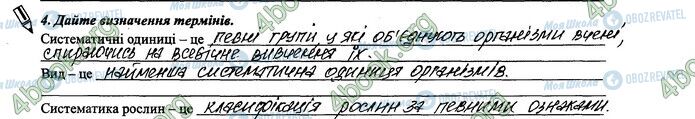 4. Дайте визначення термінів.
Систематичні одиниці – це певні групи у які об'єднують організми вчені,
спираючись на всебічне вивчення їх.
Вид – це найменша систематична одиниця організмів.
Систематика рослин – це класифікація рослин за певними ознаками.